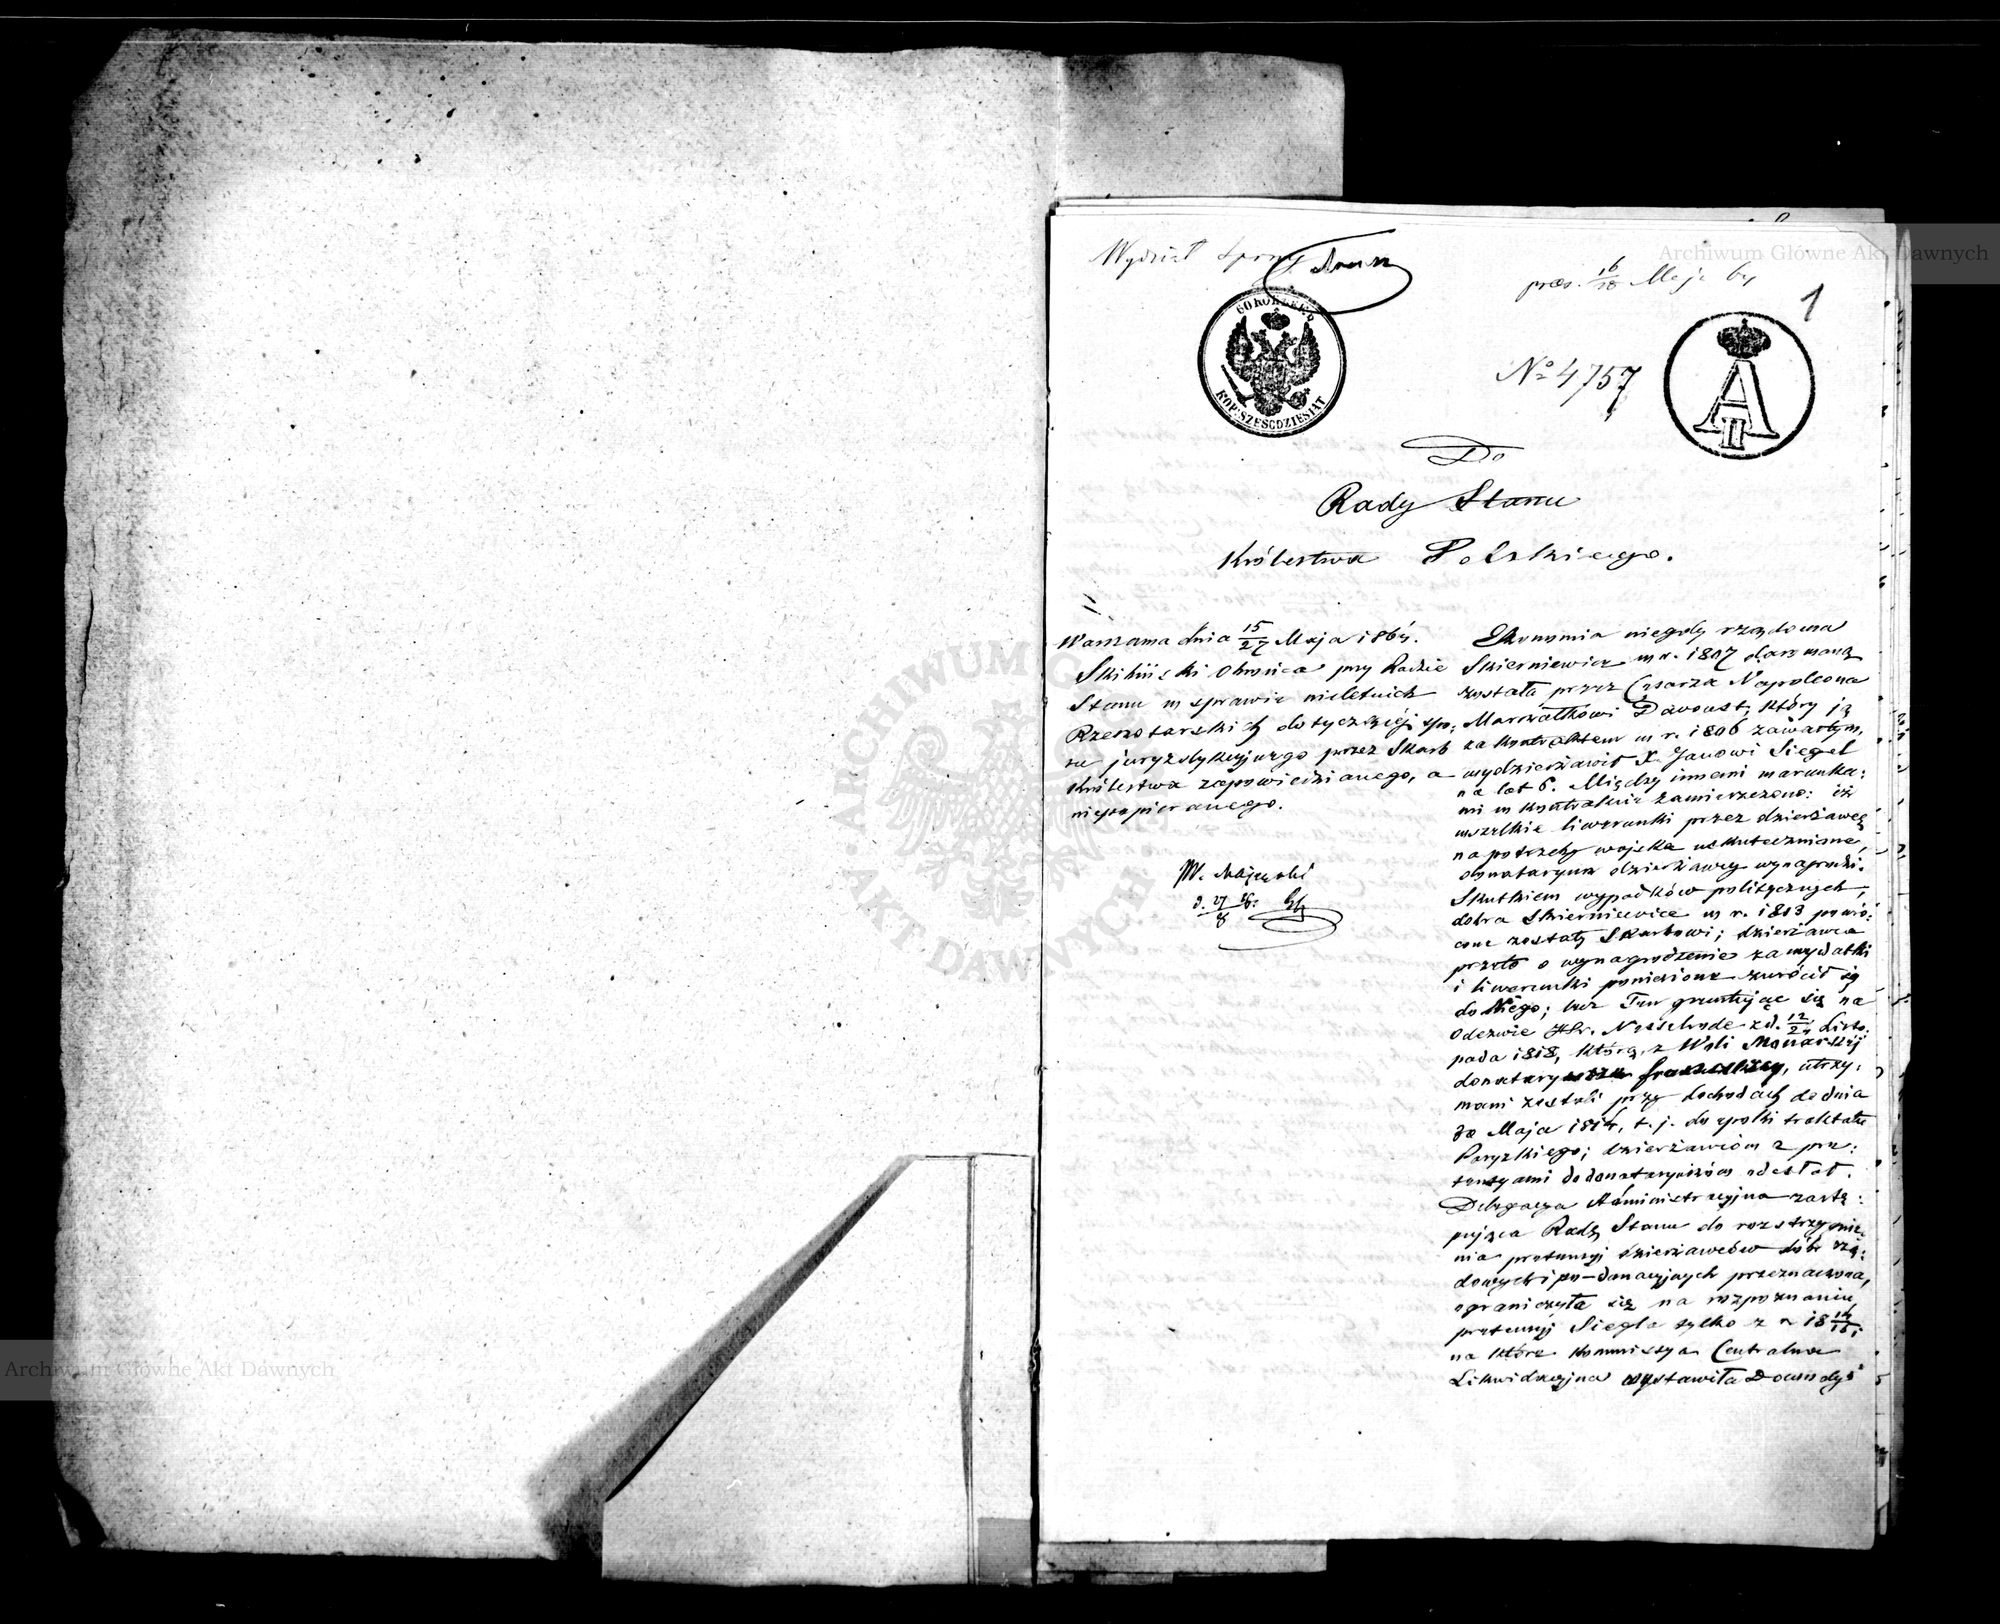 Archiwum Główne Akt Dawnych
Wydział
prez. 16/18 Maja 64
1
КОП:
KOP: SZESCDZIESIAT
No 4757
A II
Do
Rady Stanu
Królestwa Polskiego.
Warszawa dnia 15/27 Maja 1864.
Obrońca przy Radzie
Stanu w sprawie nieletnich
Rzeszotarskich dotyczącej spo-
ru juryzdykcyjnego przez Skarb
Królestwa zapowiedzianego, a
niepopieranego.
M. Majewski
Ekonomia niegdy rządowa
Skierniewice w r. 1807 darowaną
została przez Cesarza Napoleona
Marszałkowi Davoust, który ją
za kontraktem w r. 1806 zawartym,
wydzierżawił X. Janowi Siegel
na lat 6. Między innemi warunka:
mi w kontrakcie zamierzono: iż
wszelkie liwerunki przez dzierżawcę
na potrzeby wojska uskutecznione,
donataryusz dzierżawcy wynagrodzi.
Skutkiem wypadków politycznych,
dobra Skierniewice w r. 1813 powró:
cone zostały Skarbowi; dzierżawca
przeto o wynagrodzenie za wydatki
i liwerunki poniesione zwrócił się
do Niego; lecz Ten gruntując się na
Odezwie Hr. Nesselrode z d. 12/24 Listo:
pada 1818, którą, z Woli Monarszej
donataryusze francuzcy, utrzy:
mani zostali przy dochodach do dnia
30 Maja 1814, t. j. do epoki traktatu
Paryzkiego; dzierżawców z pre:
tensyami do donataryuszów odesłał.
Delegacya Administracyjna zastę:
pująca Radę Stanu do rozstrzygnie:
nia pretensyj dzierżawców dóbr rzą:
dowych i po-donacyjnych przeznaczona,
ograniczyła się na rozpoznaniu
pretensyj Siegla tylko z r. 1814/15;
na które Kommissya Centralna
Likwidacyjna wystawiła Dowody
Archiwum Główne Akt Dawnych
ARCHIWUM GŁÓWNE AKT DAWNYCH